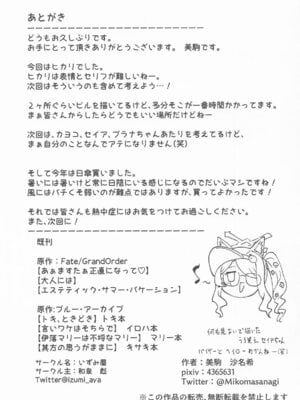 あとがき
どうもお久しぶりです。
お手にとって頂きありがとうございます。 美駒です。
今回はヒカリでした。
ヒカリは表情とセリフが難しいねー。
次回はそういうのも含めて考えよう…！
２ヶ所ぐらいビルを描いてるけど、多分そこが一番時間かかってます。
まぁ皆さんからしたらどうでもいい場所だけどねー
次回は、カヨコ、セイア、プラナちゃんあたりを考えてるけど、
まぁ自分のことなんでアテになりません(笑)
そして今年は日傘買いました。
暑いには暑いけど常に日陰にいる感じになるのでだいぶマシですね！
風にはバチくそ弱いのが難点ではありますが、買ってよかったです！
それでは皆さんも熱中症にはお気をつけてお過ごしください。
また、次回に！
既刊
原作：Fate/GrandOrder
【あぁますたぁ正邁になって♡】
【大人には】
【エステティック・サマー・バケーション】
原作：ブルー・アーカイブ
【トキ、ときどき】トキ本
【言いワケはそちらで】 イロハ本
【伊落マリーは不埒なマリー】 マリー本
【其方の思うがままに】 キサキ本
サークル名：いずみ庵
サークル主：和泉 彪
Twitter@izumi_ava
何も見ないで描いた
作者：美駒 沙名希
pixiv：4365631
Twitter：@Mikomasanagi
※この作品の転売、無断転載を禁止します